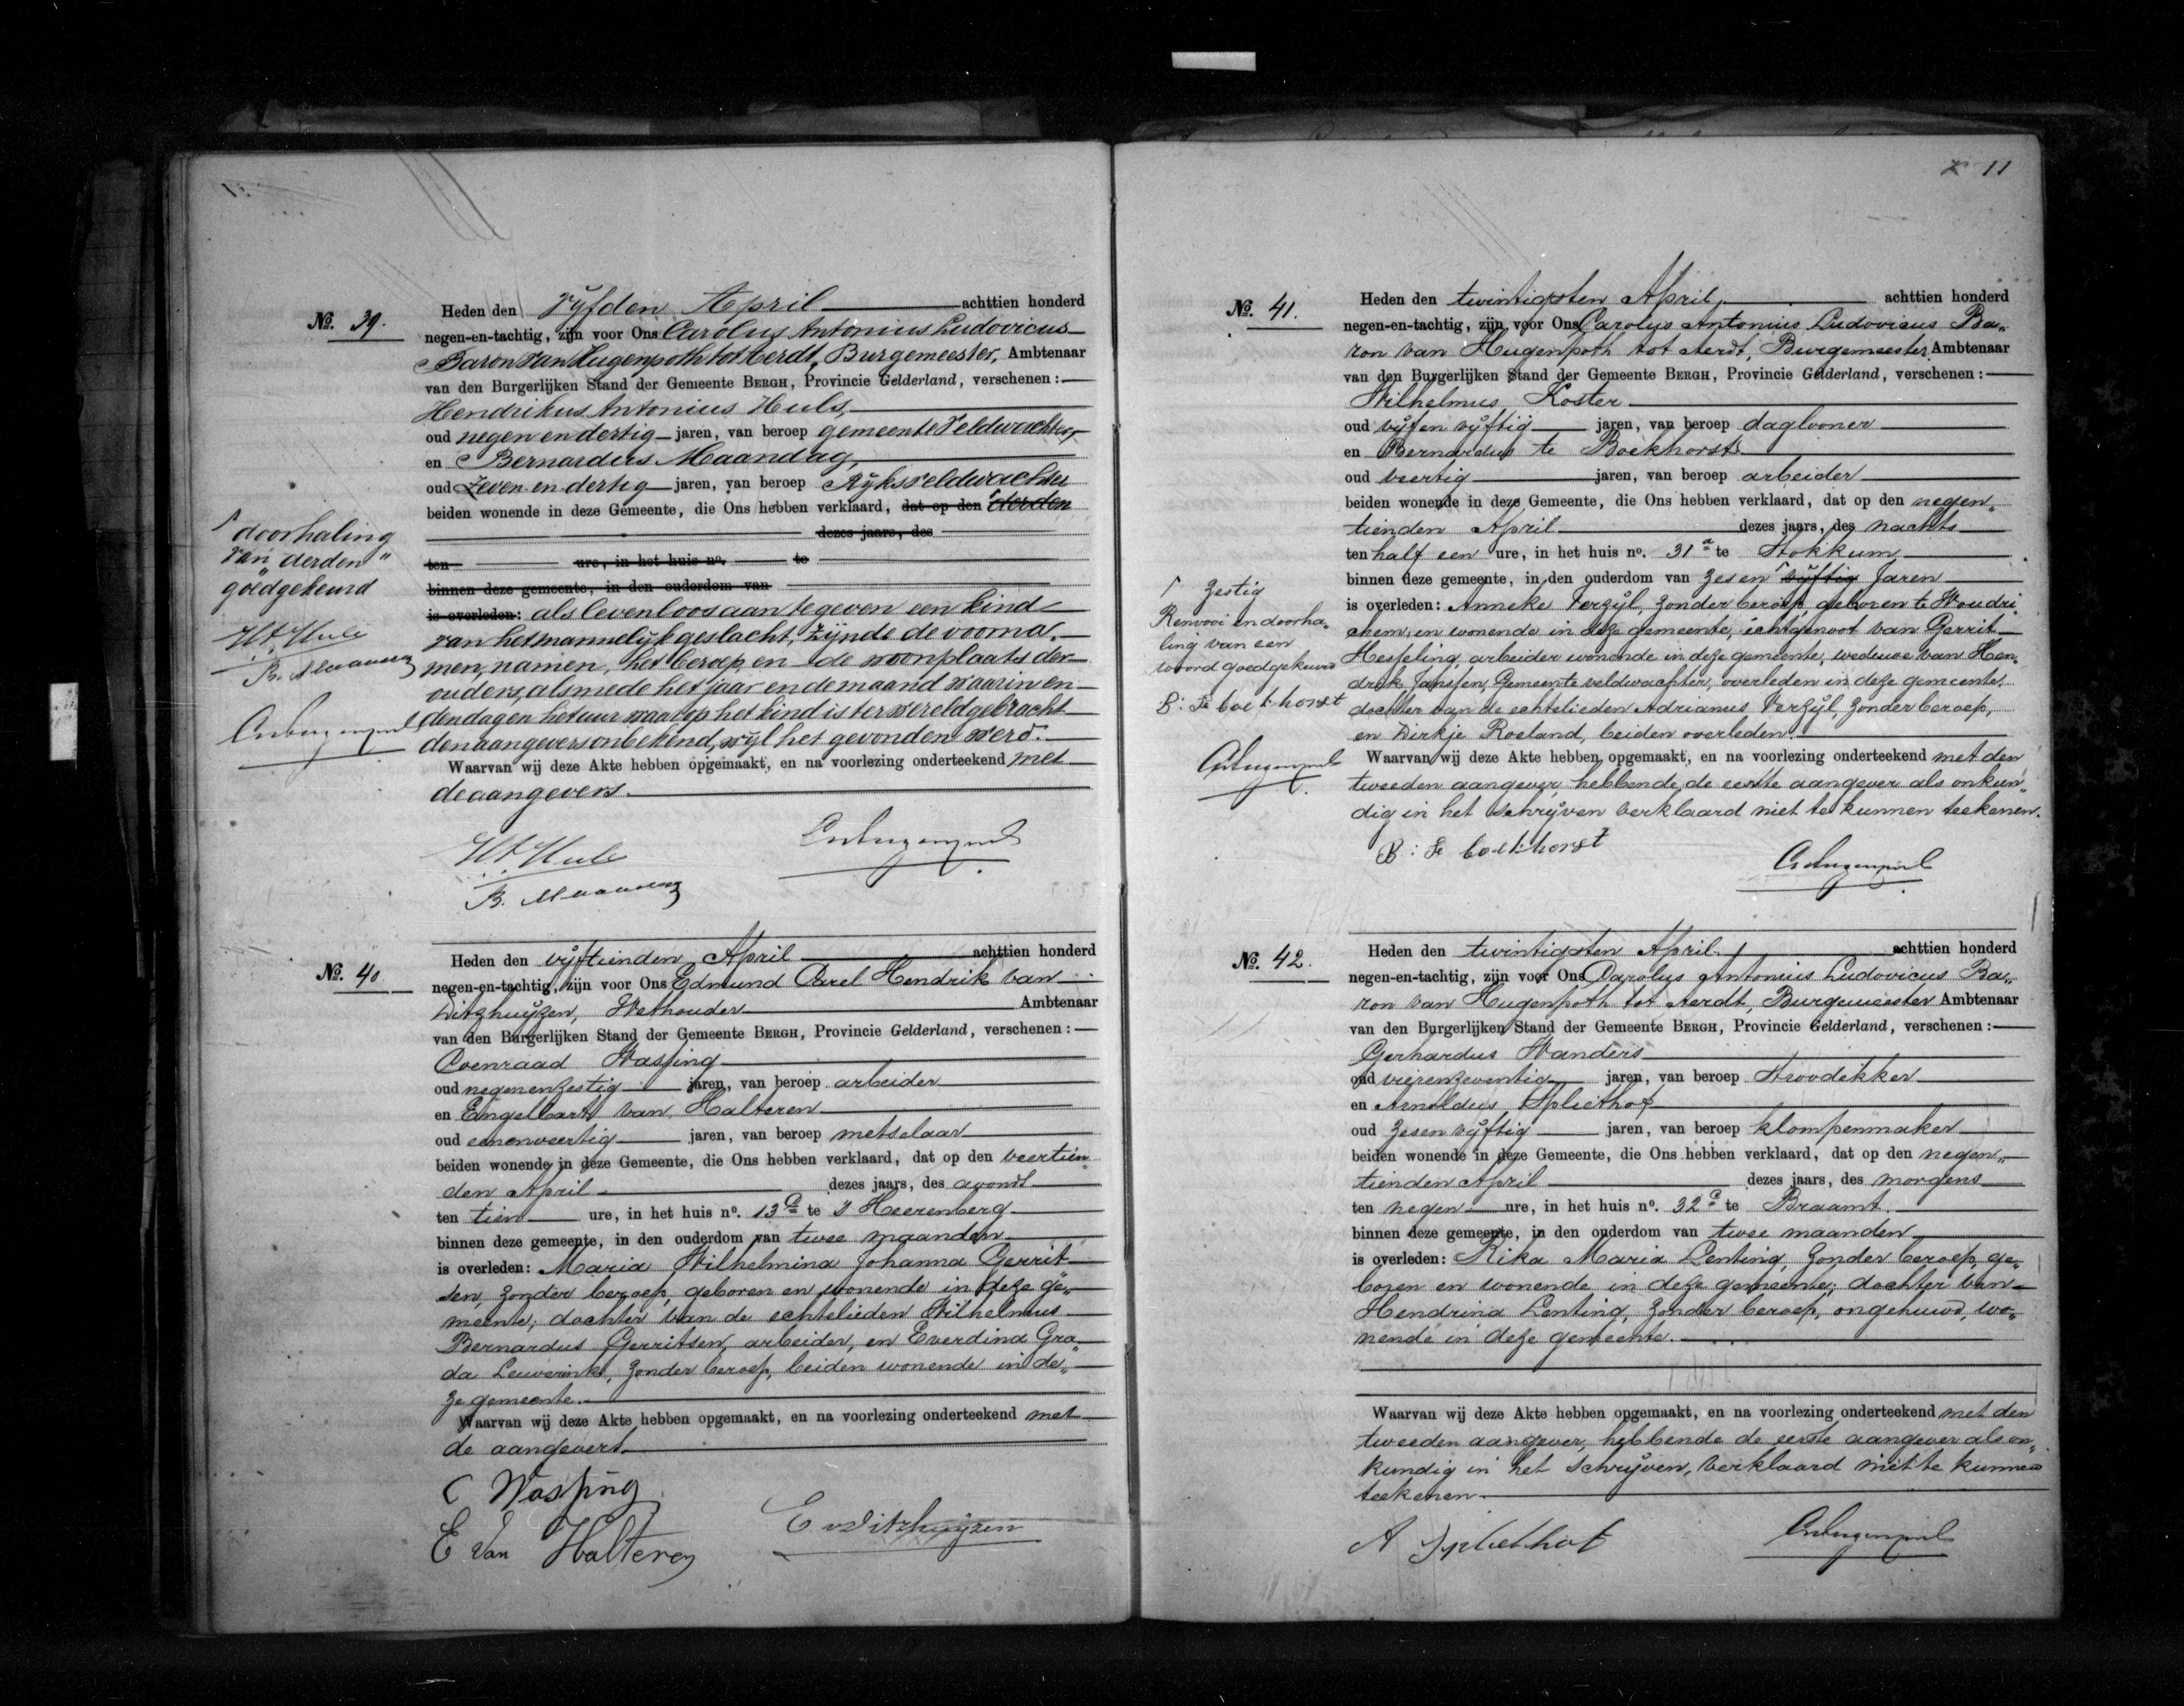 No. 39.
Heden den Vyfden April achttien honderd
negen-en-tachtig, zijn voor Ons Carolus Antonius Ludovicus
Baron van Hugenpoth tot Aerdt, Burgemeester, Ambtenaar
van den Burgerlijken Stand der Gemeente BERGH, Provincie Gelderland, verschenen:
Hendrikus Antonius Huls,
oud negen en dertig jaren, van beroep gemeente Veldwachter,
en Bernardus Maandag,
oud zeven en dertig jaren, van beroep Ryksveldwachter
beiden wonende in deze Gemeente, die Ons hebben verklaard, dat op den derden
dezes jaars, des
ten ure, in het huis no. te
binnen deze gemeente, in den ouderdom van
is overleden: als levenloos aan te geven een kind
van het mannelyk geslacht, zynde de voorna„
men, namen, het beroep en de woonplaats der
ouders, alsmede het jaar en de maand waarin en
den dag en het uur waarop het kind is ter wereld gebracht
den aangevers onbekend, wyl het gevonden werd.
Waarvan wij deze Akte hebben opgemaakt, en na voorlezing onderteekend met
de aangevers.
doorhaling
van „derden"
goedgekeurd
No. 40.
Heden den vyftienden April achttien honderd
negen-en-tachtig, zijn voor Ons Edmund Carel Hendrik van
Ditzhuyzen, Wethouder Ambtenaar
van den Burgerlijken Stand der Gemeente BERGH, Provincie Gelderland, verschenen:
Coenraad Wassing
oud negenenzestig jaren, van beroep arbeider
en Engelbart van Halteren
oud eenenveertig jaren, van beroep metselaar
beiden wonende in deze Gemeente, die Ons hebben verklaard, dat op den veertien„
den April dezes jaars, des avonds
ten tien ure, in het huis no. 13 te s Heerenberg
binnen deze gemeente, in den ouderdom van twee maanden
is overleden: Maria Wilhelmina Johanna Gerrit
sen, zonder beroep, geboren en wonende in deze ge„
meente, dochter van de echtelieden Wilhelmus
Bernardus Gerritsen, arbeider, en Everdina Gra„
da Leuverink, zonder beroep, beiden wonende in de„
ze gemeente.
Waarvan wij deze Akte hebben opgemaakt, en na voorlezing onderteekend met
de aangevers.
C Wassing
E van Halteren
E v Ditzhuyzen
11
No. 41.
Heden den twintigsten April, achttien honderd
negen-en-tachtig, zijn voor Ons Carolus Antonius Ludovicus Ba„
ron van Hugenpoth tot Aerdt, Burgemeester Ambtenaar
van den Burgerlijken Stand der Gemeente BERGH, Provincie Gelderland, verschenen:
Wilhelmus Koster
oud vyf en vyftig jaren, van beroep daglooner
en Bernardus te Boekhorst
oud veertig jaren, van beroep arbeider
beiden wonende in deze Gemeente, die Ons hebben verklaard, dat op den negen„
tienden April dezes jaars, des nachts
ten half een ure, in het huis no. 31 a te Stokkum
binnen deze gemeente, in den ouderdom van zesen vyftig Jaren
is overleden: Anneke Verzyl, zonder beroep, geboren te Woudri„
chem, en wonende in deze gemeente, echtgenoot van Gerrit
Hesseling, arbeider wonende in deze gemeente, weduwe van Hen„
drik Janssen, Gemeente veldwachter, overleden in deze gemeente,
dochter van de echtelieden Adrianus Verzyl, zonder beroep,
en Dirkje Roeland, beiden overleden.
Waarvan wij deze Akte hebben opgemaakt, en na voorlezing onderteekend met den
tweeden aangever, hebbende de eerste aangever als onkun„
dig in het schryven verklaard niet te kunnen teekenen.
zestig
Renvooi en doorha„
ling van een
woord goedgekeurd
B: te boekhorst
B: te boekhorst
No. 42.
Heden den twintigsten April achttien honderd
negen-en-tachtig, zijn voor Ons Carolus Antonius Ludovicus Ba„
ron van Hugenpoth tot Aerdt, Burgemeester Ambtenaar
van den Burgerlijken Stand der Gemeente BERGH, Provincie Gelderland, verschenen:
Gerhardus Wanders
oud vierenzeventig jaren, van beroep stroodekker
en Arnoldus Spliethof
oud zesen vyftig jaren, van beroep klompenmaker
beiden wonende in deze Gemeente, die Ons hebben verklaard, dat op den negen„
tienden April dezes jaars, des morgens
ten negen ure, in het huis no. 32 c te Braamt.
binnen deze gemeente, in den ouderdom van twee maanden
is overleden: Rika Maria Lenting, zonder beroep, ge„
boren en wonende in deze gemeente, dochter van
Hendrina Lenting, zonder beroep, ongehuwd, wo„
nende in deze gemeente.
Waarvan wij deze Akte hebben opgemaakt, en na voorlezing onderteekend met den
tweeden aangever, hebbende de eerste aangever als on„
kundig in het schryven, verklaard niet te kunnen
teekenen.
A Spliethof